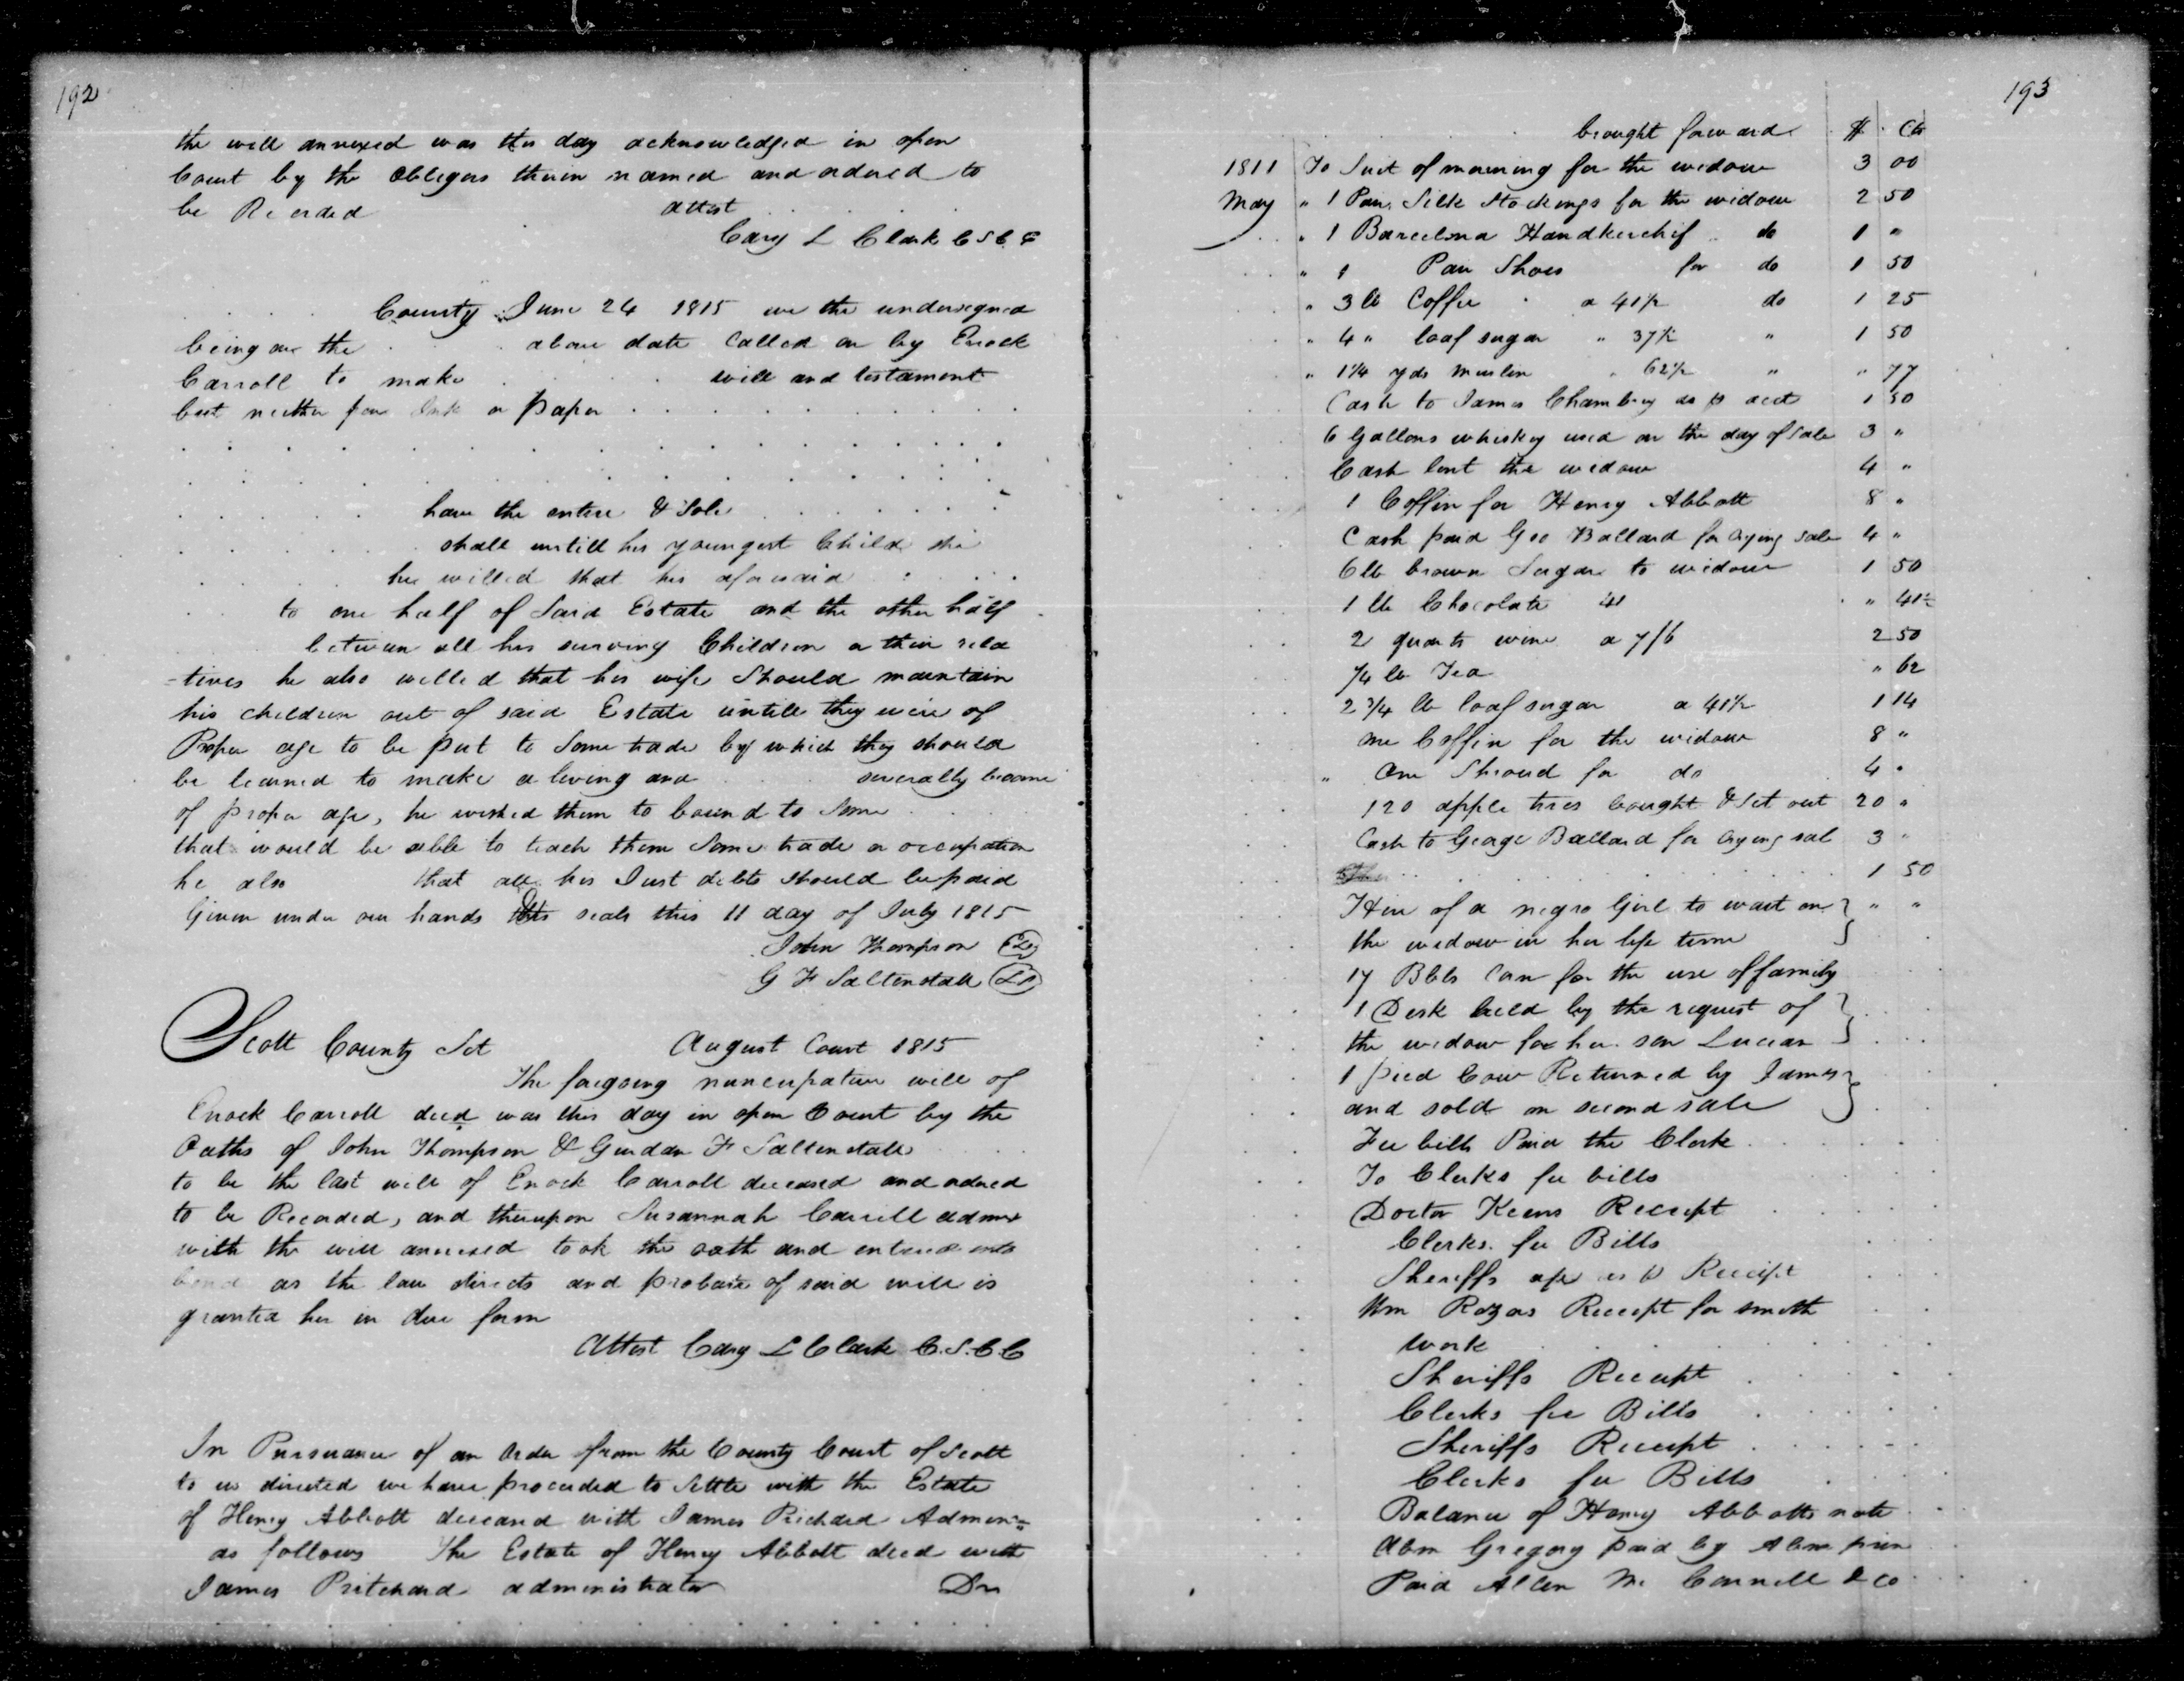 192
the will annexed was this day acknowledged in open
Court by the obligors therein named and ordered to
be Recorded attest
Cary L Clark C S C C
County June 24 1815 we the undersigned
being on the above date Called on by Enock
Carroll to make will and testament
but neither pen Ink or paper
have the entire & Sole
shall untill his youngest Child she
he willed that his aforesaid
to one half of Said Estate and the other half
between all his surviving Children or their rela
-tives he also willed that his wife Should maintain
his children out of said Estate untill they were of
Proper age to be put to Some trade by which they should
be learned to make a living and severally become
of proper age, he wished them to bound to Some
that would be able to teach them Some trade or occupation
he also that all his Just debts should be paid
Given under our hands & seals this 11 day of July 1815
John Thompson
G F Saltenstall
Scott County Sct August Court 1815
The foregoing nuncupative will of
Enock Carroll decd was this day in open Court by the
Oaths of John Thompson & Gurdan F Saltenstall
to be the last will of Enock Carroll deceased and ordred
to be Recorded, and thereupon Susannah Carrell admx
with the will annexed took the oath and entered into
bond as the law directs and probate of said will is
granted her in due form
Attest Cary L Clark C.S.C.C
In Pursuance of an Order from the County Court of Scott
to us directed we have proceeded to Settle with the Estate
of Henry Abbott deceased with James Prichard Admin-
as follows The Estate of Henry Abbott decd with
James Pritchard administrator Dr
193
brought forward $ Cts
1811 To Suit of mourning for the widow 3 00
May " 1 Pair Silk Stockings for the widow 2 50
" 1 Barcelona Handkerchif do 1 "
" 1 Pair Shoes for do 1 50
" 3 lb Coffee a 41½ do 1 25
" 4 " loaf sugar " 37½ " 1 50
" 1¼ yds muslin " 62½ " " 77
Cash to James Chambers as p acct 1 50
6 Gallons whiskey used on the day of Sale 3 "
Cash lent the widow 4 "
1 Coffin for Henry Abbott 8 "
Cash paid Geo Ballard for crying sale 4 "
6 lb brown Sugar to widow 1 50
1 lb Chocolate 41 " 41½
2 quarts wine a 7/6 2 50
¼ lb Tea " 62
2¾ lb loaf sugar a 41½ 1 14
one Coffin for the widow 8 "
" One Shroud for do 4 "
120 apple trees bought & Set out 20 "
Cash to George Ballard for crying sal 3 "
1 50
Hire of a negro Girl to wait on " "
the widow in her life time
17 Bbls Corn for the use of family
1 Desk held by the request of
the widow for her son Lucian
1 pied Cow Returned by James
and sold on second sale
Fee bills Paid the Clerk
To Clerks fee bills
Doctor Keens Receipt
Clerks fee Bills
Sheriffs as p Receipt
Wm Receipt for smith
work
Sheriffs Receipt
Clerks fee Bills
Sheriffs Receipt
Clerks fee Bills
Balance of Henry Abbotts note
Abm Gregory paid by
Paid Allen Mc Connell & co